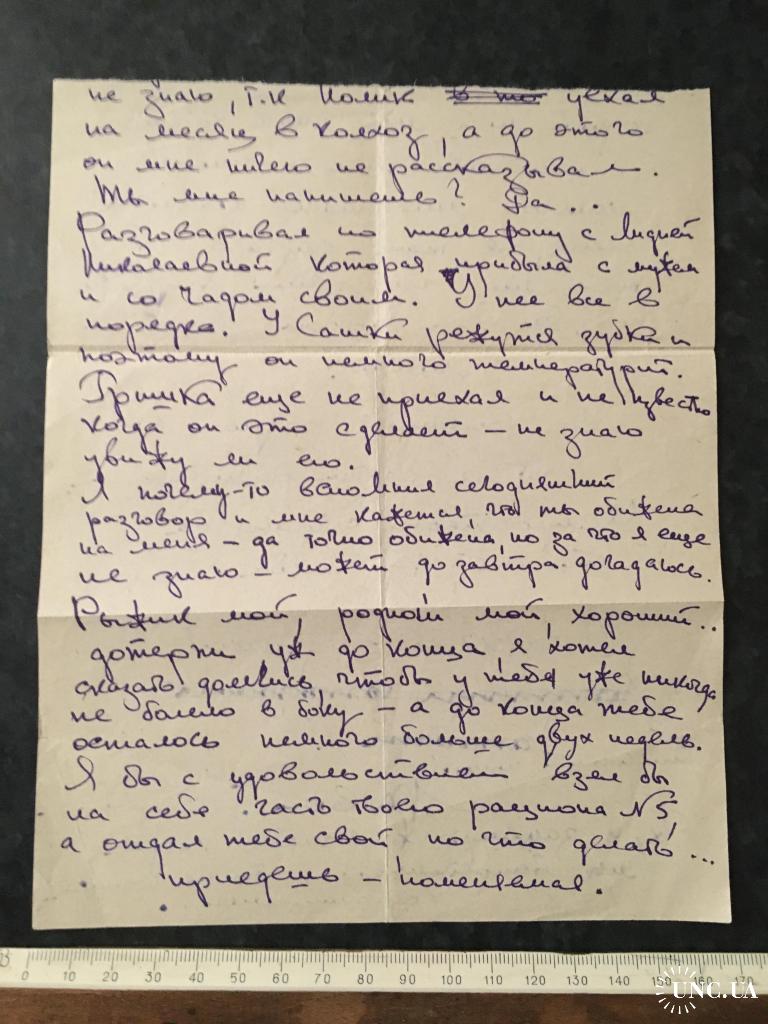 не знаю, т.к Полик уехал
на месяц в колхоз, а до этого
он мне ничего не рассказывал.
Ты мне напишешь? Да...
Разговаривал по телефону с Лидией
Николаевной которая прибыла с мужем
и со чадом своим. У нее все в
порядке. У Сашки режутся зубки и
поэтому он немного температурит.
Гришка еще не приехал и не известно
когда он это сделает – не знаю
увижу ли его.
Я почему-то вспомнил сегодняшний
разговор и мне кажется, что ты обижена
на меня – да точно обижена, но за что я еще
не знаю – может до завтра догадаюсь.
Рыжик мой, родной мой, хороший..
дотерпи уж до конца, я хотел
сказать долечись, чтобы у тебя уже никогда
не болело в боку – а до конца тебе
осталось немного больше двух недель.
Я бы с удовольствием взял бы
на себя часть твоего рациона №5,
а отдал тебе свой но что делать...
приедешь – поменяемся.
0 10 20 30 40 50 60 70 80 90 100 110 120 130 140 150 160 170
UNC.UA